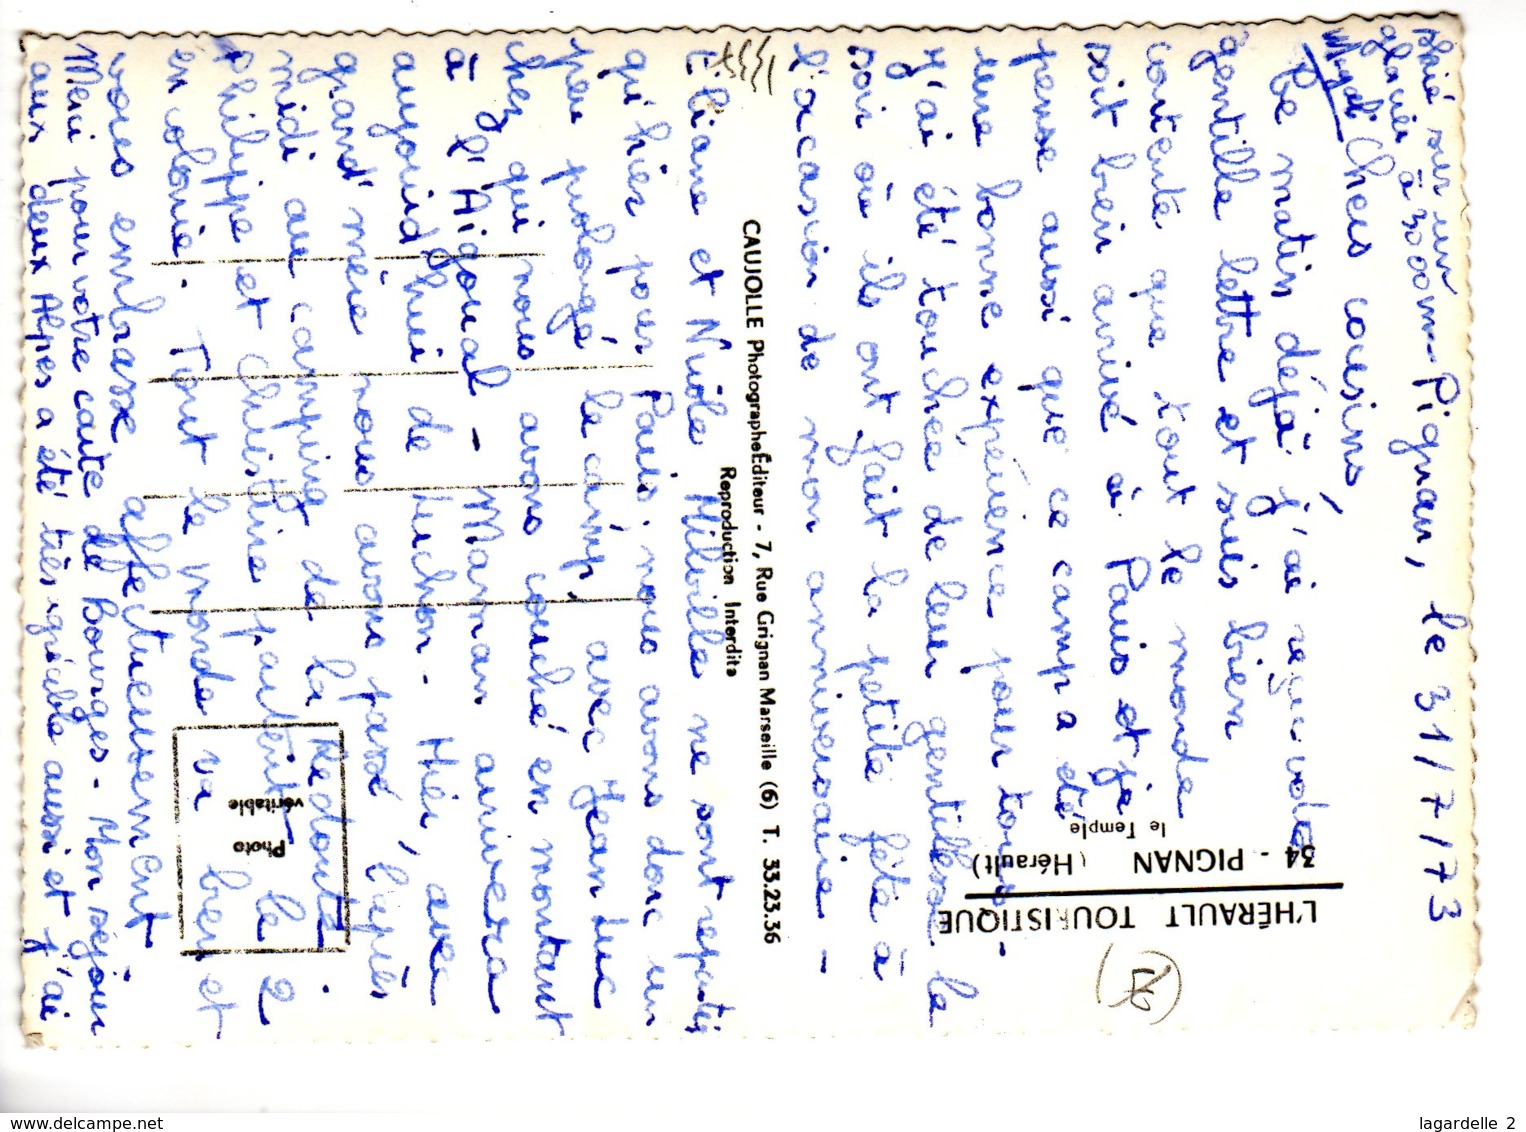 Pignan, le 31/7/73
Chers cousins,
Ce matin déjà j'ai reçu votre
gentille lettre et suis bien
contente que tout le monde
soit bien arrivé à Paris et je
pense aussi que ce camp a été
une bonne expérience pour tous -
J'ai été touchée de leur gentillesse la
soir où ils ont fait la petite fête à
l'occasion de mon anniversaire -
Eliane et Nicole Millville ne sont reparties
qu'hier pour Paris. nous avons donc un
peu prolongé le camp, avec Jean Luc
chez qui nous avons couché en montant
à l'Aigoual - Maman arrivera
aujourd'hui de Luchon. Hier, avec
grand'mère nous avons passé l'après
midi au camping de la Redoute.
Philippe et Christine partent le 2
en colonie. Tout le monde va bien et
vous embrasse affectueusement
Merci pour votre carte de Bourges - Mon séjour
aux deux Alpes a été très agréable aussi et j'ai
skié sur un
glacier à 3000 m —
Magali
CAUJOLLE Photographe Éditeur - 7, Rue Grignan Marseille (6) T. 33.23.36
Reproduction Interdite
L'HÉRAULT TOURISTIQUE
34 - PIGNAN (Hérault)
le Temple
Photo
véritable
lagardelle 2
www.delcampe.net